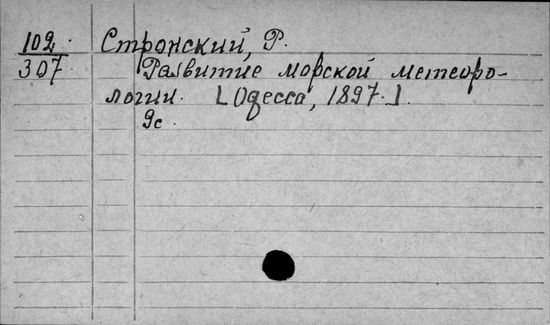 102. Стронский, Р.
307. Развитие морской метеоро-
логии. [Одесса, 1897.].
9с.